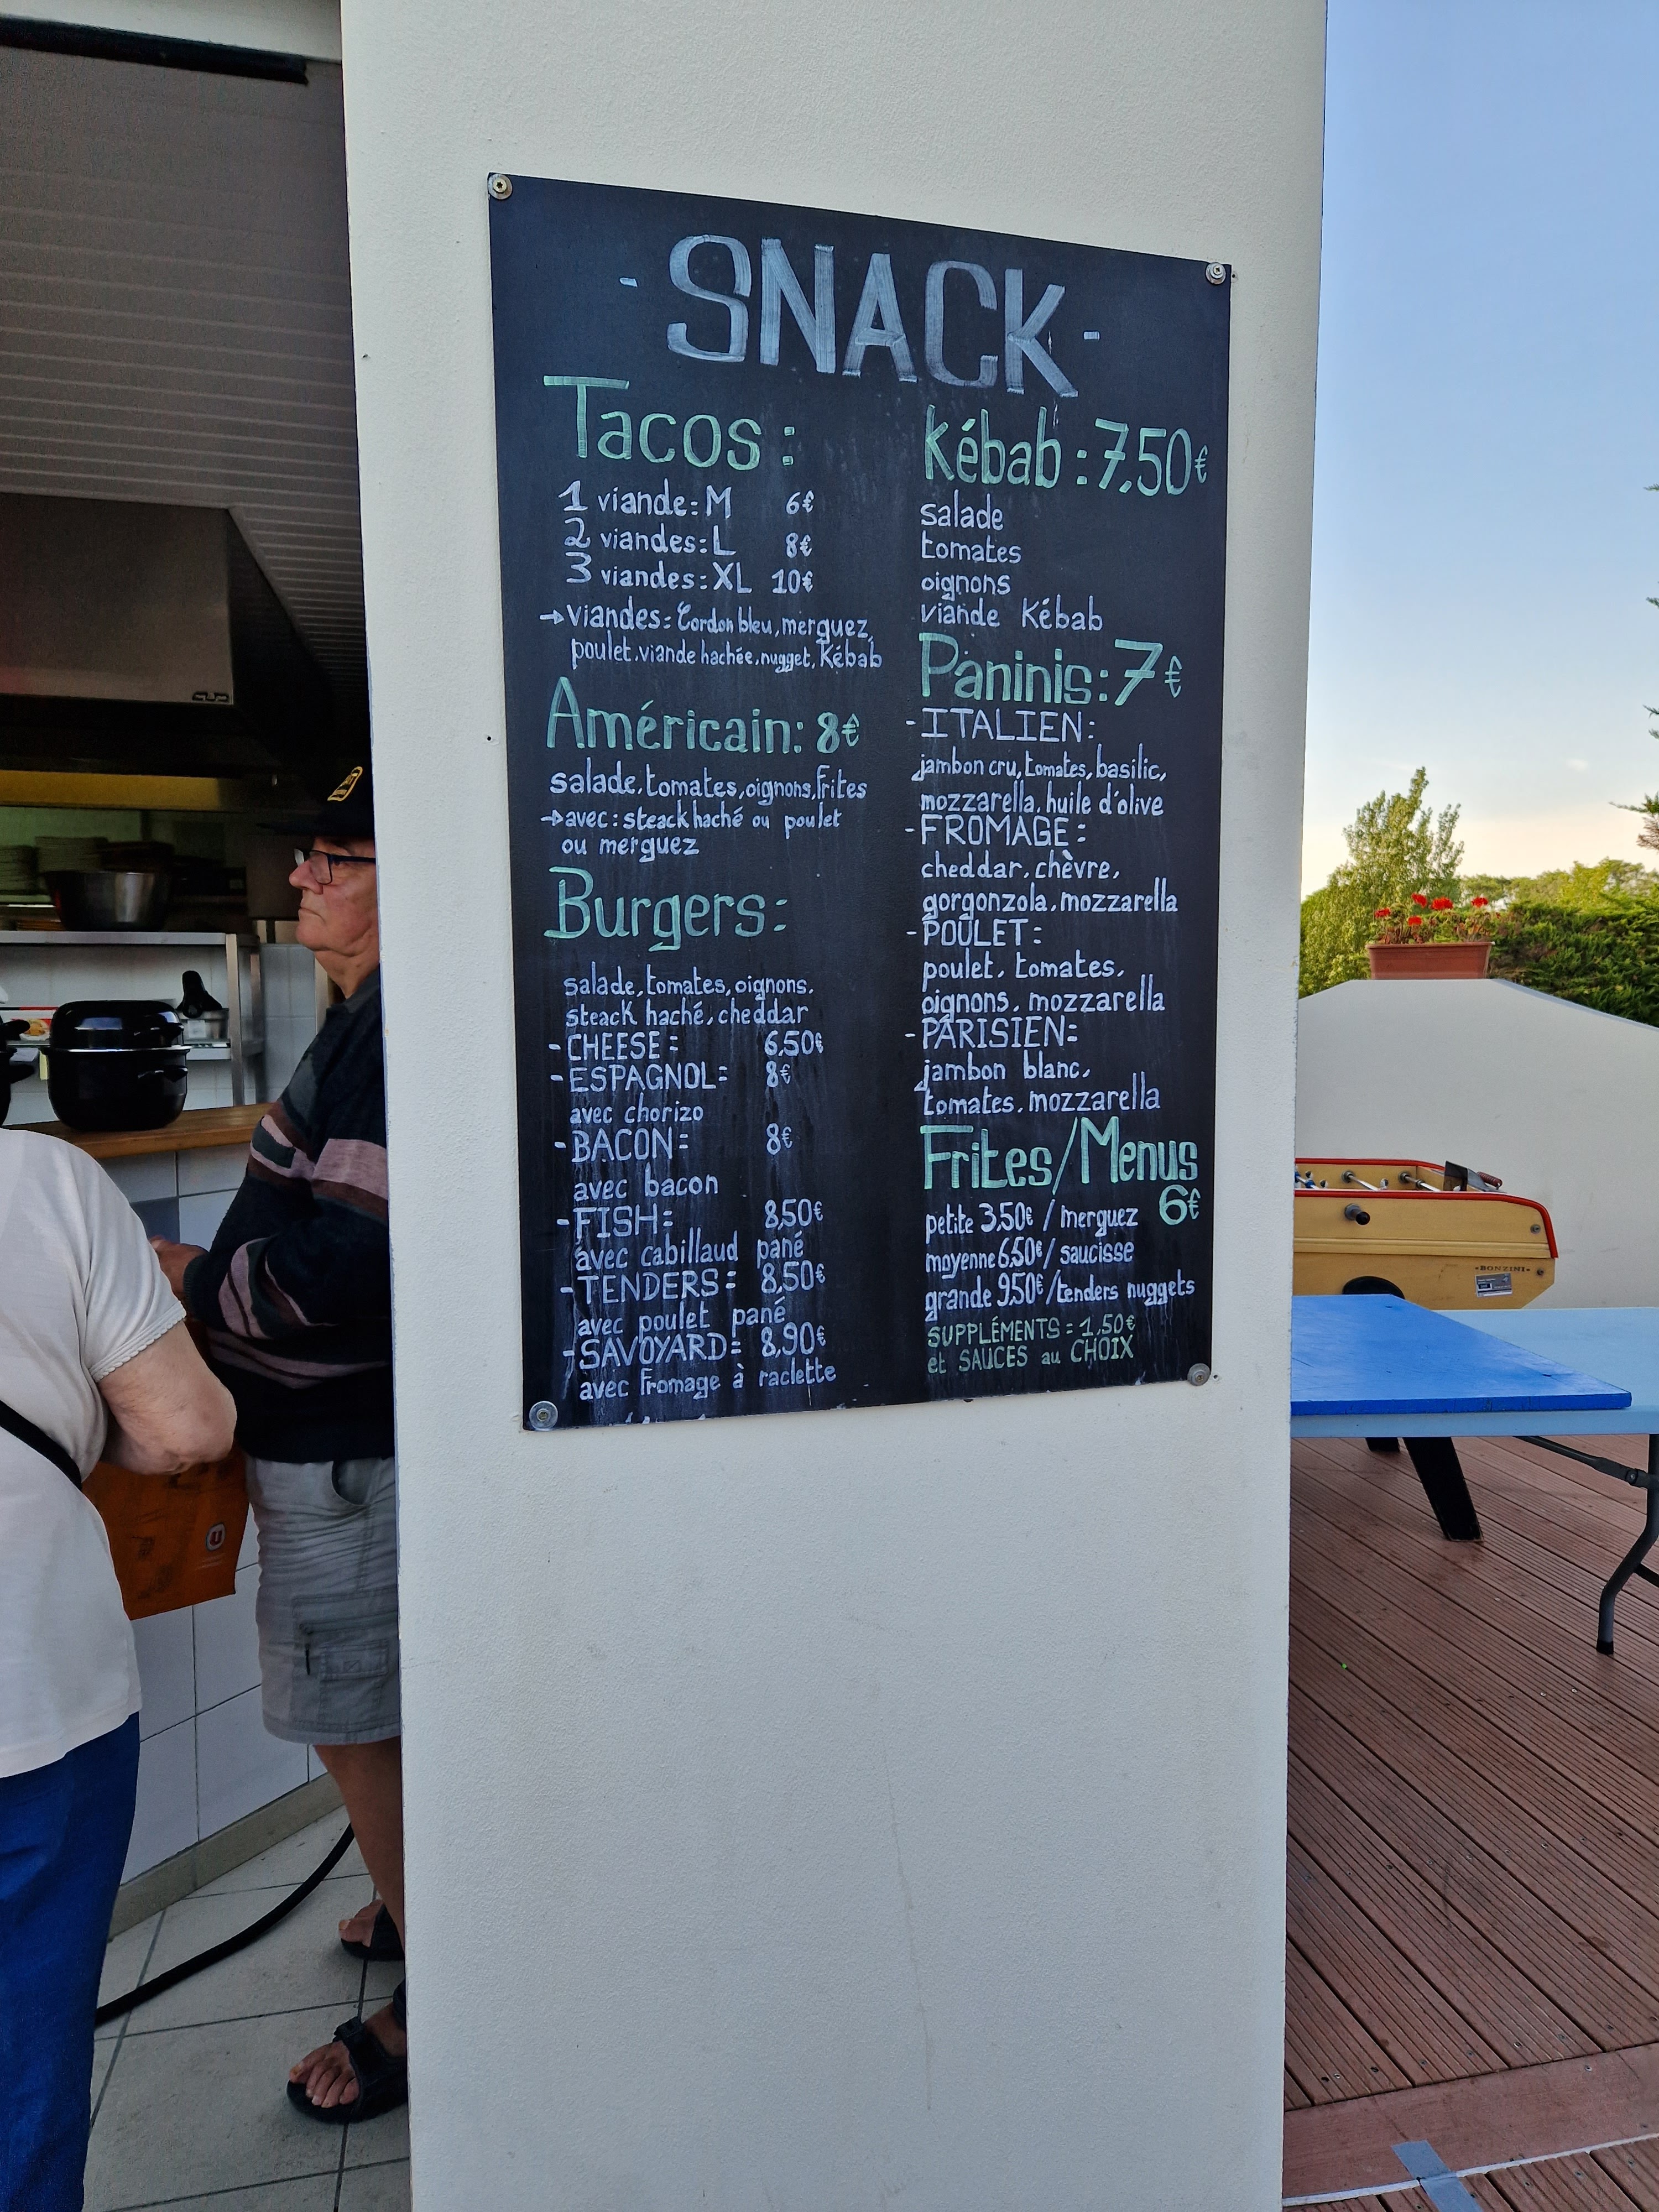 - SNACK -
Tacos :
1 viande: M 6€
2 viandes: L 8€
3 viandes: XL 10€
→ viandes: Cordon bleu, merguez,
poulet, viande hachée, nugget, Kébab
Américain: 8€
salade, tomates, oignons, frites
→ avec: steack haché ou poulet
ou merguez
Burgers:
salade, tomates, oignons,
steack haché, cheddar
- CHEESE: 6,50€
- ESPAGNOL: 8€
avec chorizo
- BACON: 8€
avec bacon
- FISH: 8,50€
avec cabillaud pané
- TENDERS: 8,50€
avec poulet pané
- SAVOYARD: 8,90€
avec fromage à raclette
Kébab : 7,50€
salade
tomates
oignons
viande Kébab
Paninis: 7€
- ITALIEN:
jambon cru, tomates, basilic,
mozzarella, huile d'olive
- FROMAGE:
cheddar, chèvre,
gorgonzola, mozzarella
- POULET:
poulet, tomates,
oignons, mozzarella
- PARISIEN:
jambon blanc,
tomates, mozzarella
Frites/Menus
6€
petite 3,50€ / merguez
moyenne 6,50€ / saucisse
grande 9,50€ / tenders nuggets
SUPPLÉMENTS = 1,50€
et SAUCES au CHOIX
BONZINI
U